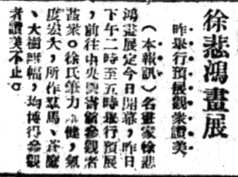 徐悲鴻畫展
昨舉行預展觀衆讚美
（本報訊）名畫家徐悲
鴻畫展定今日開幕，昨日
下午二時至五時舉行預展
，前往中央與寄齋參觀者
甚衆。徐氏筆力健，氣
度宏大，所作駿馬、蒼鷹
、大樹諸幅，均博得參觀
者讚美不止。